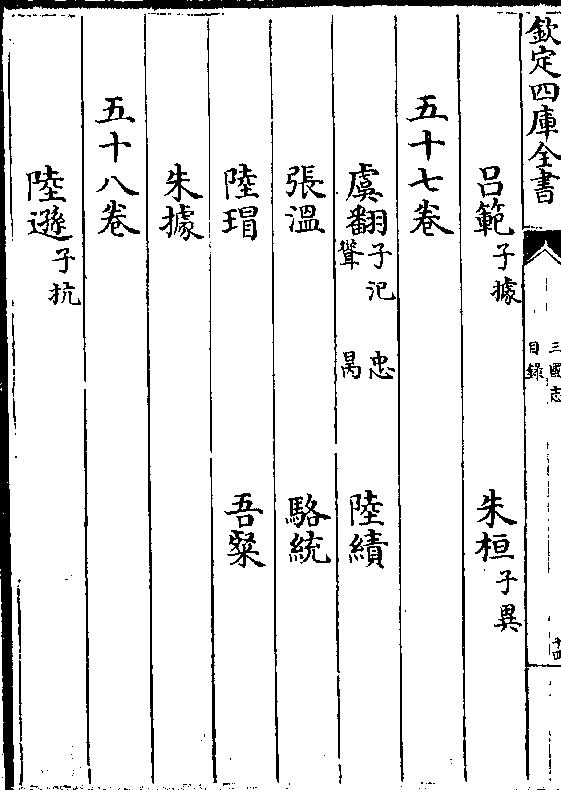 欽定四庫全書
三國志
目錄
十四
呂範子據 朱桓子異
五十七卷
虞翻子汜 忠 聳 昺 陸績
張溫 駱統
陸瑁 吾粲
朱據
五十八卷
陸遜子抗